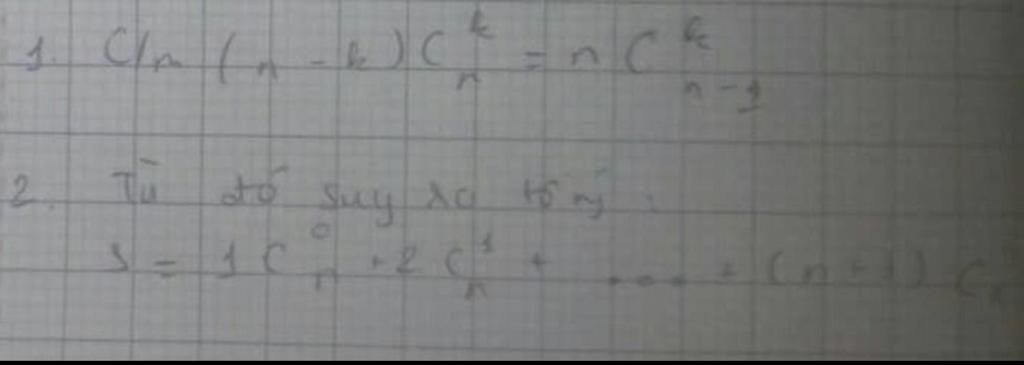 1. C/m (n - k) C_n^k = n C_{n-1}^k
2. Từ đó suy ra tổng:
S = 1 C_n^0 + 2 C_n^1 + .... + (n + 1) C_n